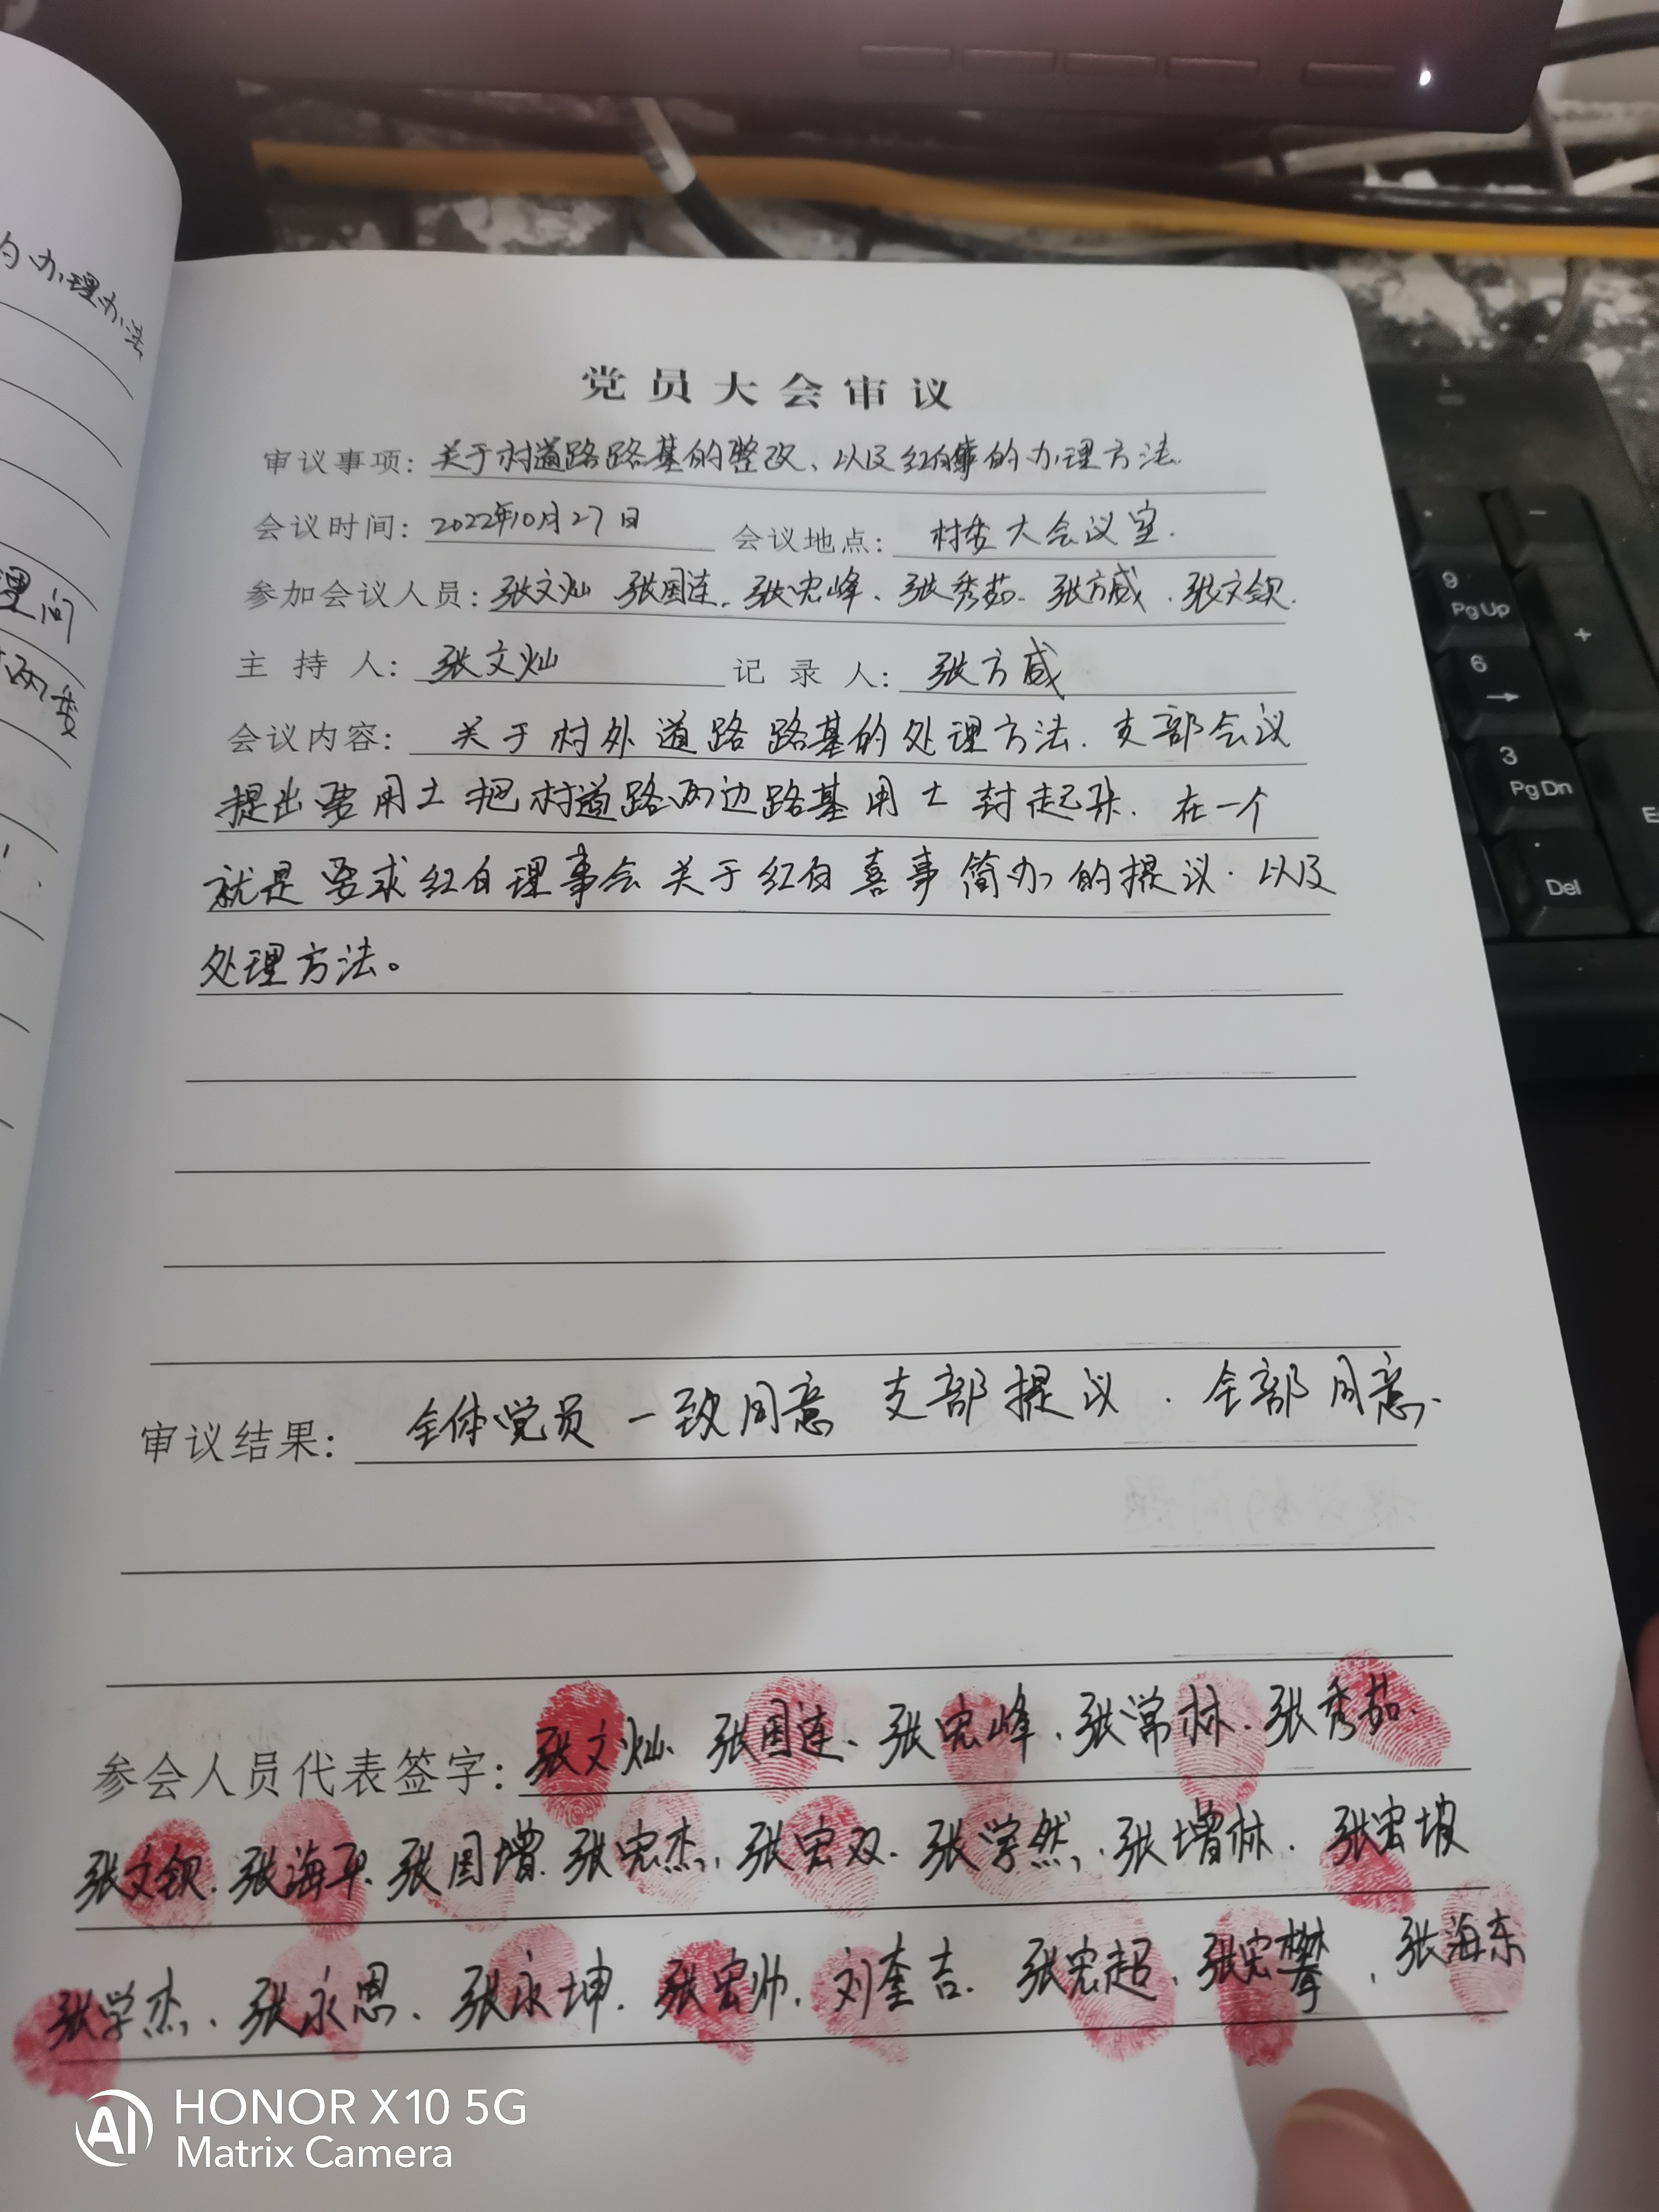 办理办法
理间
党员大会审议
审议事项：关于村道路路基的整改、以及红白事的办理方法
会议时间：2022年10月27日 会议地点：村委大会议室.
参加会议人员：张文灿 张国连、张宏峰、张秀茹、张方威、张文钦.
主持人：张文灿 记录人：张方威
会议内容：关于村外道路路基的处理方法.支部会议
提出要用土把村道路两边路基用土封起来.在一个
就是要求红白理事会关于红白喜事简办的提议.以及
处理方法。
审议结果：全体党员一致同意 支部提议.全部同意.
参会人员代表签字：张文灿、张国连、张宏峰、张常林、张秀茹.
张文钦.张海平.张国增.张宏杰、张宏双.张学然、张增林.张宏坡
张学杰、张永恩、张永坤.张宏帅.刘奎吉.张宏超.张宏攀、张海东
9
PgUp
6
3
PgDn
Del
+
-
AI HONOR X10 5G
Matrix Camera